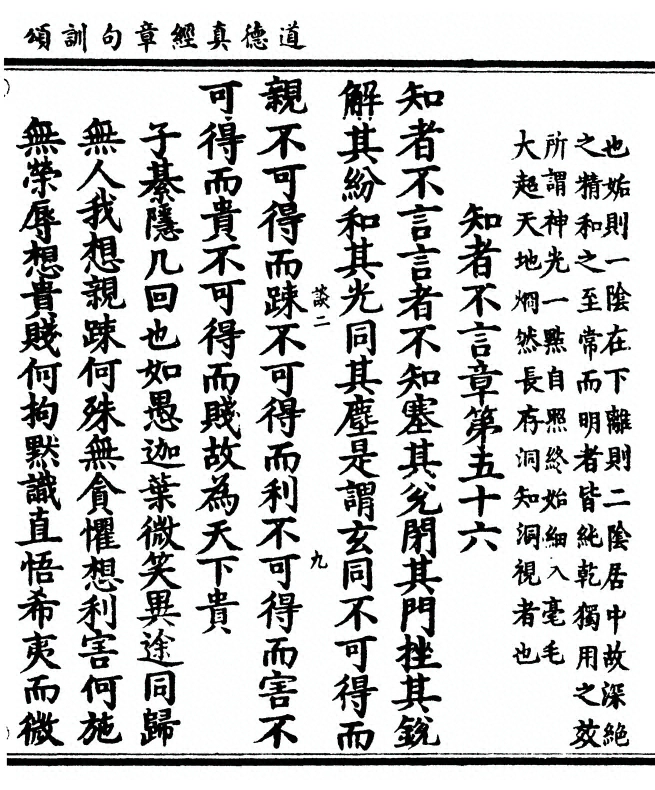 道德真經章句訓頌
也姤則一陰在下離則二陰居中故深絕
之精和之至常而明者皆純乾獨用之效
所謂神光一點自照終始細入毫毛
大起天地烱然長存洞知洞視者也
知者不言章第五十六
知者不言言者不知塞其兊閉其門挫其銳
解其紛和其光同其塵是謂玄同不可得而
談二
九
親不可得而踈不可得而利不可得而害不
可得而貴不可得而賤故為天下貴
子綦隱几回也如愚迦葉微笑異途同歸
無人我想親踈何殊無貪懼想利害何施
無榮辱想貴賤何拘默識直悟希夷而微